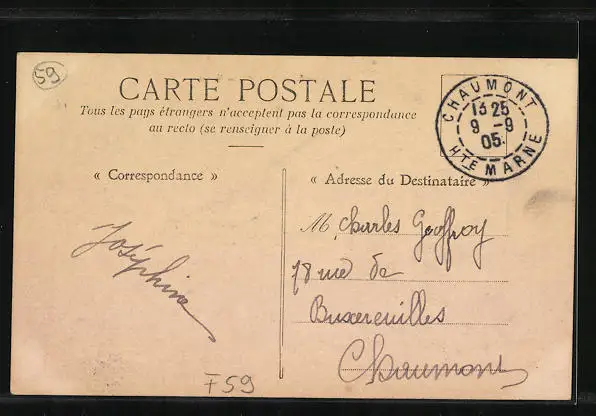 59
CARTE POSTALE
Tous les pays étrangers n'acceptent pas la correspondance
au recto (se renseigner à la poste)
CHAUMONT
13 25
9 -9
05.
HTE MARNE
« Correspondance »
« Adresse du Destinataire »
Joséphine
M. Charles Geoffroy
18 rue de
Buxereuilles
Chaumont
F59